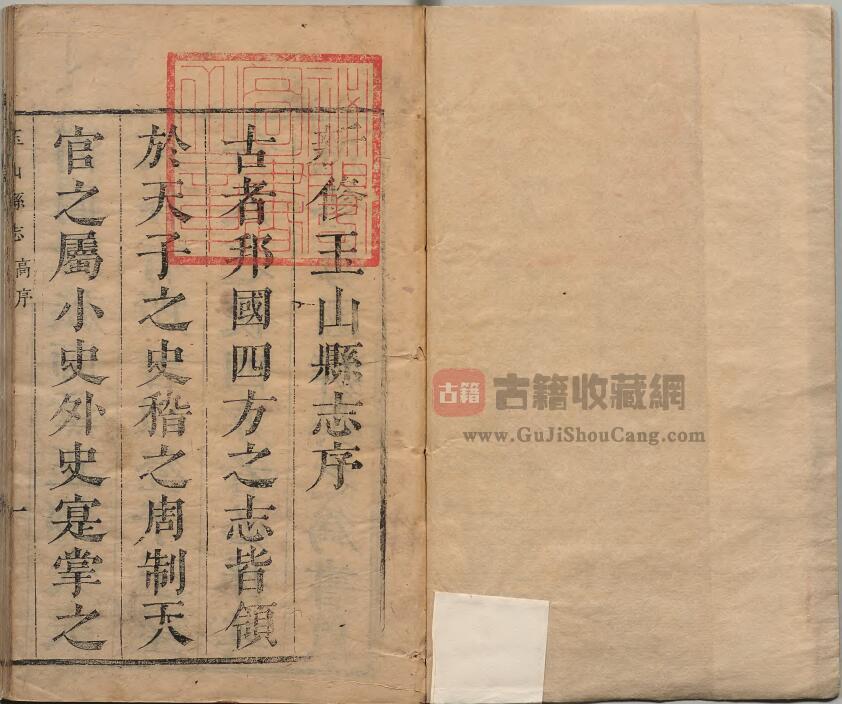 新修玉山縣志序
古者邦國四方之志皆領
於天子之史稽之周制天
官之屬小史外史寔掌之
玉山縣志 高序 一
古籍
古籍收藏網
www.GuJiShouCang.com